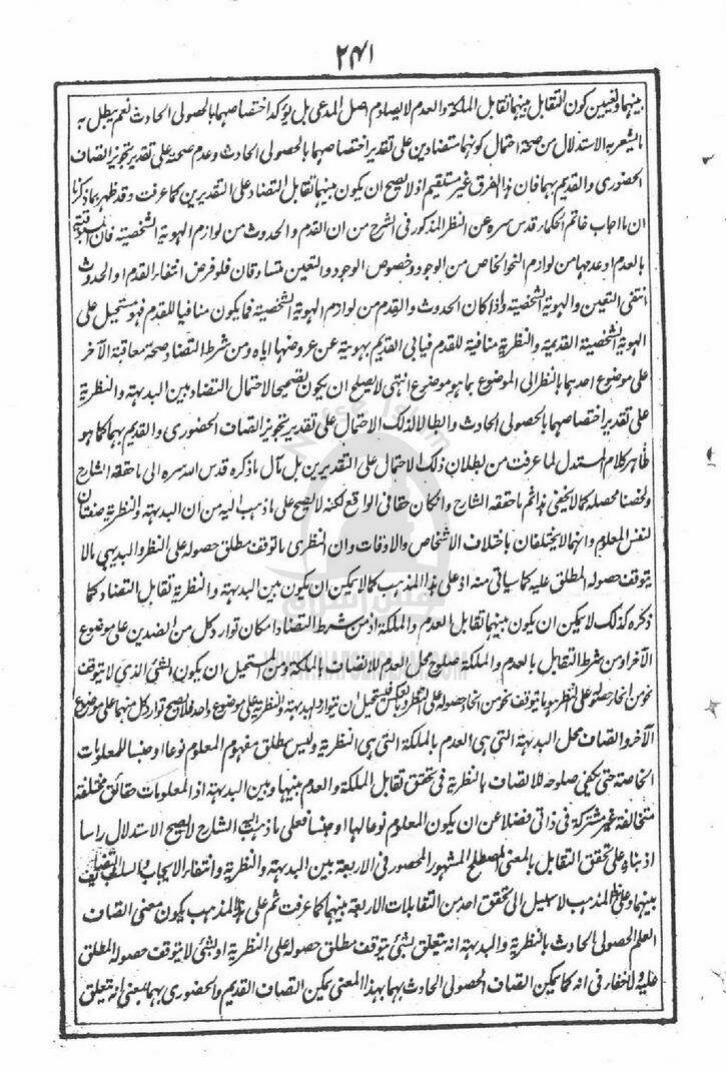 ۲۴۱
بينهما وتعيين كون التقابل بينهما تقابل الملكة والعدم لا يصادم اصل المدعى بل يؤكد اختصاصهما بالحصولى الحادث نعم يبطل به
ما يشعر به الاستدلال من صحة احتمال كونهما متضادين على تقدير اختصاصهما بالحصولى الحادث وعدم صحته على تقدير تجويز اتصاف
الحضورى والقديم بهما فان هذا الفرق غير مستقيم اذ لا يصح ان يكون بينهما تقابل التضاد على التقديرين كما عرفت وقد ظهر بما ذكرنا
ان ما اجاب خاتم الحكماء قدس سره عن النظر المذكور فى الشرح من ان القدم والحدوث من لوازم الهوية الشخصية فان المسبوقية
بالعدم او عدمها من لوازم النحو الخاص من الوجود وخصوص الوجود والتعين متساوقان فلو فرض انتفاء القدم او الحدوث
انتفى التعين والهوية الشخصية واذا كان الحدوث والقدم من لوازم الهوية الشخصية فما يكون منافيا للقدم فهو مستحيل على
الهوية الشخصية القديمة والنظرية منافية للقدم فيابى القديم بهويته عن عروضها اياه ومن شرط التضاد صحة معاقبة الآخر
على موضوع احدهما بالنظر الى الموضوع بما هو موضوع انتهى لا يصلح ان يكون تصحيحا لاحتمال التضاد بين البديهة والنظرية
على تقدير اختصاصهما بالحصولى الحادث وابطالا لذلك الاحتمال على تقدير تجويز اتصاف الحضورى والقديم بهما كما هو
ظاهر كلام المستدل لما عرفت من بطلان ذلك الاحتمال على التقديرين بل مآل ما ذكره قدس الله سره الى ما حققه الشارح
ولخصنا محصله كما لا يخفى ثم ما حققه الشارح وان كان حقا فى الواقع لكنه لا يصح على ما ذهب اليه من ان البديهة والنظرية صفتان
لنفس المعلوم وانهما لا يختلفان باختلاف الاشخاص والاوقات وان النظرى ما توقف مطلق حصوله على النظر والبديهى ما لا
يتوقف حصوله المطلق عليه كما سياتى منه اذ على هذا المذهب كما لا يمكن ان يكون بين البديهة والنظرية تقابل التضاد كما
ذكره كذلك لا يمكن ان يكون بينهما تقابل العدم والملكة اذ من شرط التضاد امكان توارد كل من الضدين على موضوع
الآخر ومن شرط التقابل بالعدم والملكة صلوح محل العدم للاتصاف بالملكة ومن المستحيل ان يكون الشئ الذى لا يتوقف
نحو من انحاء حصوله على النظر مما يتوقف نحو من انحاء حصوله على النظر وبالعكس فيستحيل ان يتوارد البديهة والنظرية على موضوع واحد فلا يصح توارد كل منهما على موضوع
الآخر واتصاف محل البديهة التى هى العدم بالملكة التى هى النظرية وليس مطلق مفهوم المعلوم نوعا او جنسا للمعلومات
الخاصة حتى يكفى صلوحه للاتصاف بالنظرية فى تحقق تقابل الملكة والعدم بينها وبين البديهة اذ المعلومات حقائق مختلفة
متخالفة غير مشتركة فى ذاتى فضلا عن ان يكون المعلوم نوعا لها او جنسا فعلى ما ذهب اليه الشارح لا يصح الاستدلال راسا
اذ بناؤه على تحقق التقابل بالمعنى المصطلح المشهور المحصور فى الاربعة بين البديهة والنظرية وانتفاء الايجاب والسلب والتضايف
بينهما وعلى هذا المذهب لا سبيل الى تحقق احد من التقابلات الاربعة بينهما كما عرفت ثم على هذا المذهب يكون معنى اتصاف
العلم الحصولى الحادث بالنظرية والبديهة انه يتعلق بشئ يتوقف مطلق حصوله على النظرية او بشئ لا يتوقف حصوله المطلق
عليه ولا خفاء فى انه كما يمكن اتصاف الحصولى الحادث بهما بهذا المعنى يمكن اتصاف القديم والحضورى بهما بمعنى انه يتعلق